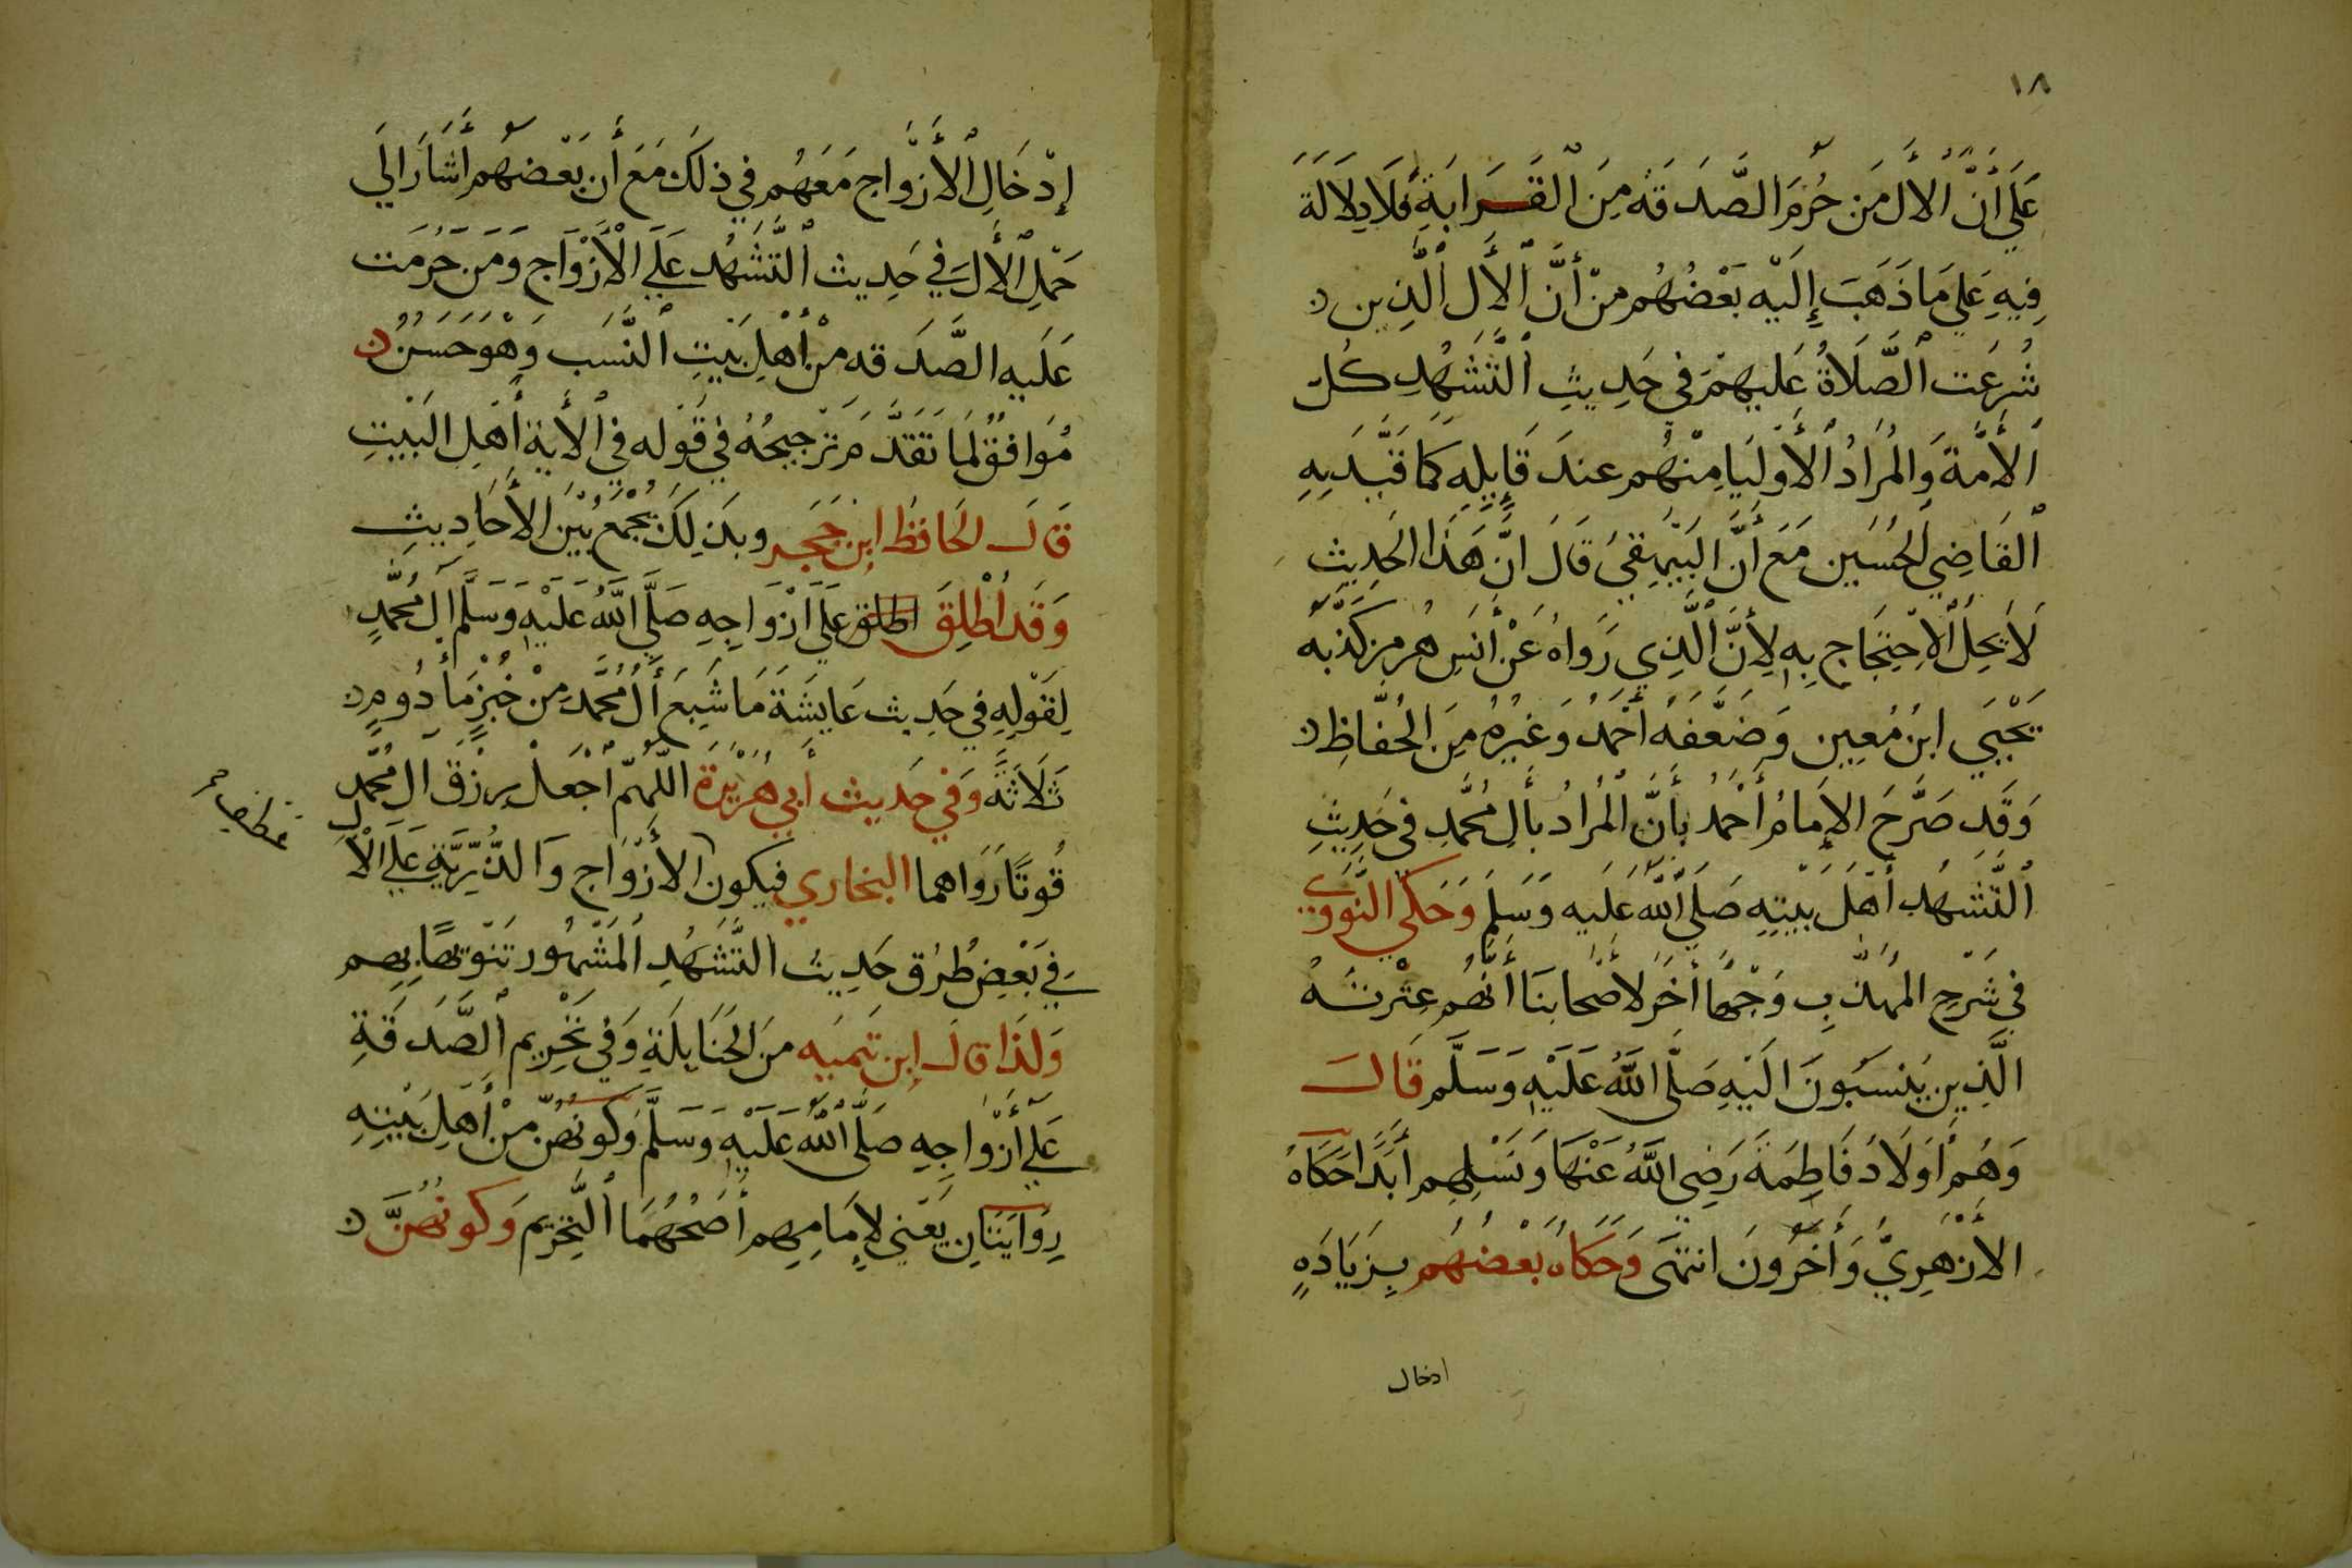 ١٨
عَلَي أَنَّ الأل مَن حُرِّمَ الصَّدَقَة مِنَ الْقَرَابَةِ فَلَا دِلَالَة
فِيهِ عَلي مَا ذَهَبَ إِلَيْه بَعْضُهُم مِنْ أَنَّ الأَل الَّذِين
شُرِعَت الصَّلَاةُ عَلَيهِمْ فِي حَدِيثِ التَّشَهُّدِ كُلّ
الأُمَّة وَالمُرَادُ الأَوْلِيَا مِنْهُم عندَ قَايِلِهِ كَمَا قَيَّدَ بِهِ
القَاضِي الحُسَين مَعَ أَنَّ البَيْهقِيَ قَالَ انَّ هَذَا الحَدِيثِ
لَا يَحِلُ الاحْتِجَاج بِهِ لِأَنَّ الَّذِي رَوَاهُ عَنْ أَنَسِ هرمز كَذَّبَه
يَحْيَي ابنُ مُعِين وَضَعَّفَهُ أَحْمَدُ وَغَيْرُهُ مِنَ الحُفَّاظِ
وَقَدِ صَرَّحَ الإِمَامُ أَحْمَدُ بأَنَّ الْمُرَادُ بأَلِ مُحَمَّدِ فِي حَدِيثِ
التَّشَهُّد أَهْلَ بَيْتِهِ صَلَّي اللَّه عَلَيه وَسَلمَ وَحَكَي النَّوَوِي
فِي شَرْحِ المهَذَّبِ وَجْهًا أَخَرَ لأَصْحَابِنَا أَنَّهُم عِتْرتَهُ
الَّذِين يُنسبُونَ الَيْهِ صَلَّى اللَّهُ عَلَيْهِ وَسَلَّم قَالَ
وَهُم أَوْلَادُ فَاطِمَةَ رَضِى اللَّهُ عَنْهَا وَنَسْلِهِم أَبَدًا حَكَاهُ
الأزْهَرِيّ وَأَخَرُونَ انتَهَى وَحَكَاهُ بَعْضُهُم بِزِيَادَةٍ
ادخال
إِدْخَالِ الأَزْوَاج مَعَهُم فِي ذلكَ مَعَ أَن بَعْضهُم أَشَارَ الَي
حَمْلِ الأَلَ فِي حَدِيث التَّشَهُّد عَلَي الأَزْوَاج وَمَن حَرُمَت
عَلَيه الصَّدَقه مِنْ أَهْلِ بَيْتِ النَّسَب وَهْوَ حَسَنٌ
مُوَافقٌ لَمَا تَقَدَّمَ تَرْجِيحُهُ فِي قَوْله فِي الأَية أَهْلِ البَيْتِ
قَالَ الحَافظُ ابن حَجَر وبذَلِكَ يُجْمَعُ بَيْنَ الأَحَادِيثِ
وَقَد أُطْلِقَ اطلق عَلَي أَزْوَاجِهِ صَلَّي اللَّهُ عَلَيْهِ وَسَلَّم أَل مُحَمَّدٍ
لِقَوْلِهِ فِي حَدِيث عَايشَةَ مَا شَبِعَ أَلُ مُحَمَّدِ مِنْ خُبْزٍ مَأْدُومٍ
ثَلَاثَةً وَفِي حَدِيث أَبِي هُرَيْرَة اللَّهُمّ أجْعَلْ رِزْقَ ال مُحَمَّدٍ
قُوتًا رَوَاهما البخاري فيكون الأَزْوَاج وَالذُّرِّيَّةِ عَلَي الْأَل
فِي بَعْضِ طُرُق حَدِيث التَّشَهُّدِ المَشْهُور تَنْويهًا بِهِم
وَلذَا قَالَ ابن تَيميَه مِنَ الحَنَابلَةِ وَفي تَحْرِيم الصَّدَقَةِ
عَلَي أَزْوَاجِهِ صَلَّى اللَّهُ عَلَيْهِ وَسَلَّم وَكَونُهُنَّ مِنْ أَهْلِ بَيْتِهِ
رِوَايَتَانِ يَعْنِي لإِمَامِهِم أَصَحُّهُمَا التَّحْرِيم وَكَونُهُنَّ